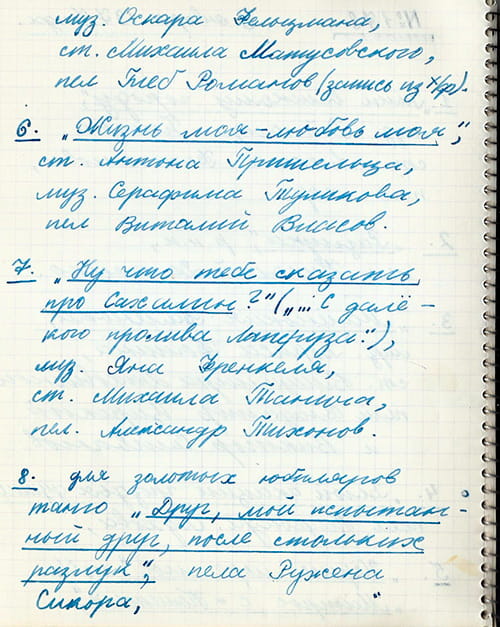 муз. Оскара Фельцмана,
ст. Михаила Матусовского,
пел Глеб Романов (запись из х/ф).
6. „Жизнь моя – любовь моя",
ст. Антона Пришельца,
муз. Серафима Туликова,
пел Виталий Власов.
7. „Ну что тебе сказать
про Сахалин?" („... С далё-
кого пролива Лаперуза."),
муз. Яна Френкеля,
ст. Михаила Танича,
пел. Александр Тихонов.
8. для золотых юбиляров
танго „Друг, мой испытан-
ный друг, после стольких
разлук", пела Ружена
Сикора,